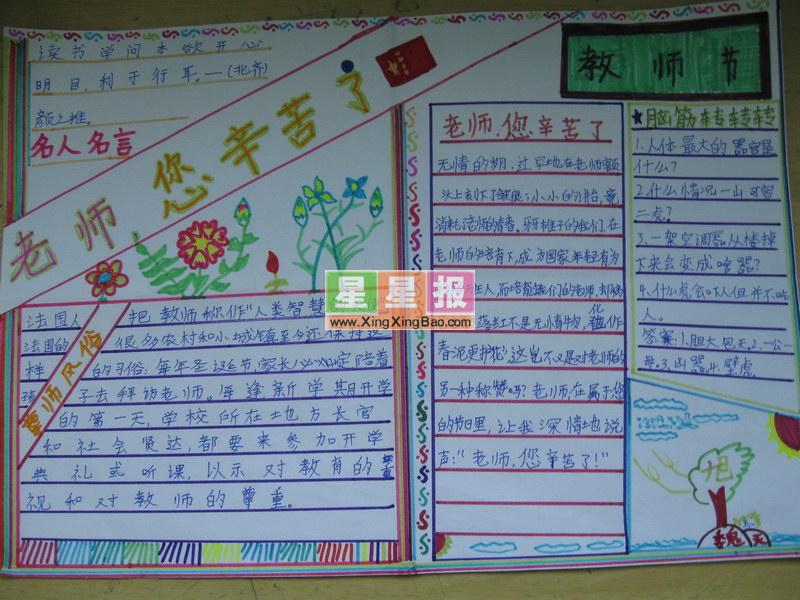 读书学问本欲开心
明目,利于行耳。—(北齐)
颜之推。
名人名言
老师您辛苦了
教师节
法国人 把教师称作"人类智慧
法国的 很多农村和小城镇至今还保持这
样 的习俗:每年圣诞节,家长 必 定陪着
孩 子去拜访老师。每逢新学期开学
的第一天,学校所在地方长官
和社会贤达,都要来参加开学
典礼或听课,以示对教育的重
视和对教师的尊重。
尊师风俗
星星报
www.XingXingBao.com
老师,您辛苦了
无情的 过早地在老师
头上刻下了皱痕;小小的 竟
消耗 师的青春,牙牙 的我们,在
老师的培育下,成为国家年轻有为
班人,而培育我们的老师,却
落红不是无情物,化作
春泥更护花"这岂不又是对老师的
另一种称赞吗?老师,在属于您
的节日里,让我深情地说
声:"老师,您辛苦了!"
★脑筋转转转
1.人体最大的器官是
什么?
2.什么情况一山可容
二虎?
3.一架空调器从楼掉
下来会变成啥器?
4.什么虎会吓人但并不吃
人。
答案:1.胆大包天.2.一公一
母.3.凶器.4.壁虎
旭
魏